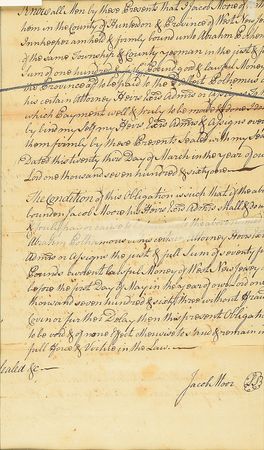 Know all Men by these Present That Jacob Moore of
hem in the County of Hunterdon & Province of West New Jers
Innkeeper am held & firmly bound unto Abraham
of the same Township & County Yeoman in the just & f
Sum of one hundred & fifty Pounds good & lawful Money
the Province afs to be paid to the
his certain Attorney Heirs Exrs Admrs or Assigns To
which Payment well & truly to be made & done
by bind my Self my Heirs Exrs Admrs & Assigns every
them firmly by these Presents Sealed with my
Dated this twenty third Day of March in the year of ou
Lord one thousand seven hundred & sixty one
The Condition of this Obligation is such that if the ab
bounden Jacob Moore his Heirs Exrs Admrs Shall & do
Abraham his certain Attorney Heirs
Admrs or Assigns the just & full Sum of seventy
Pounds current lawful Money of West New Jersey
before the first Day of May in the year of our Lord one
thousand seven hundred & sixty three without
Covin or further Delay then this present Obligat
to be void & of none Effect otherwise to stand & remain in
full force & Virtue in the Law
Sealed &c
Jacob Moor